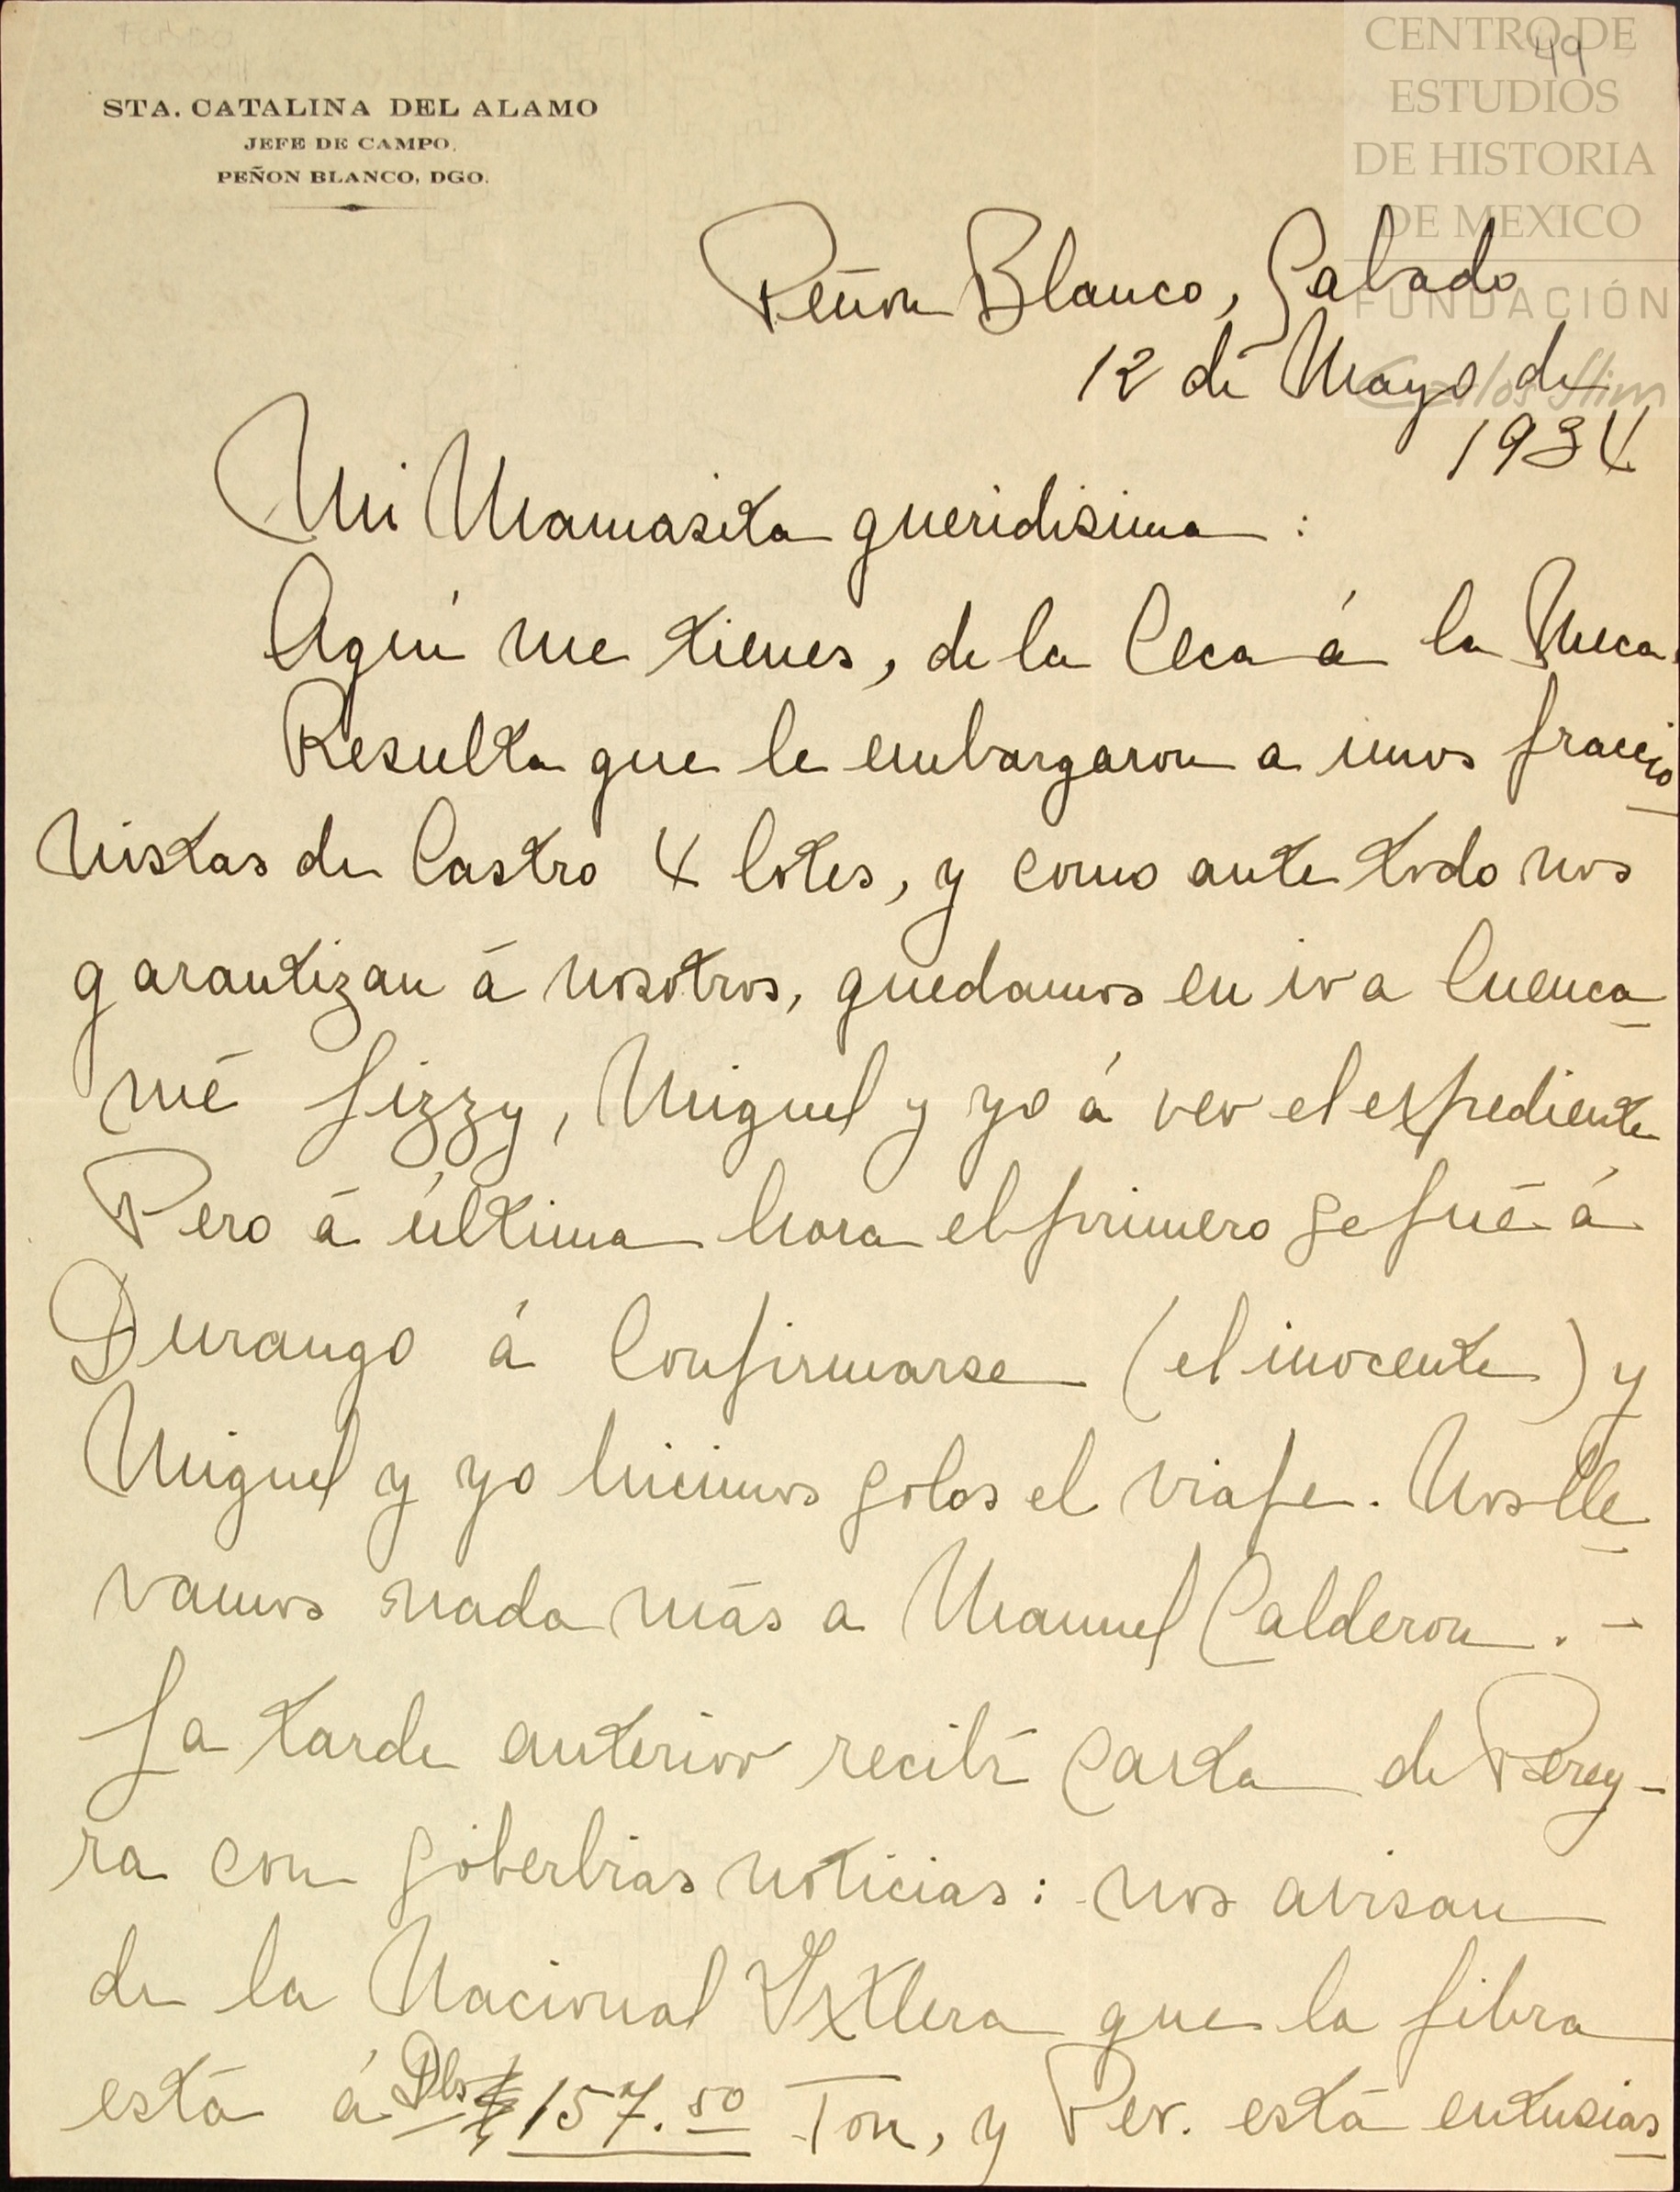 CENTRO DE
49
ESTUDIOS
DE HISTORIA
DE MEXICO
FUNDACIÓN
Carlos Slim
STA. CATALINA DEL ALAMO
JEFE DE CAMPO.
PEÑON BLANCO, DGO.
Peñon Blanco, Sabado
12 de Mayo de
1934
Mi Mamasita queridisima :
Aquí me tienes, de la Ceca á la Meca.
Resulta que le embargaron a unos fraccio
nistas de Castro 4 lotes, y como ante todo nos
garantizan á nosotros, quedamos en ir a Cuenca
mé Lizzy, Miguel y yo á ver el expediente
Pero á última hora el primero se fué á
Durango á Confirmarse (el inocente) y
Miguel y yo hicimos solos el viaje. Nos lle
vamos nada más a Manuel Calderon . -
La tarde anterior recibí carta de Perey-
ra con soberbias noticias: nos avisan
de la Nacional Ixtlera que la fibra
está á Dls $ 157.50 Ton, y Per. está entusias